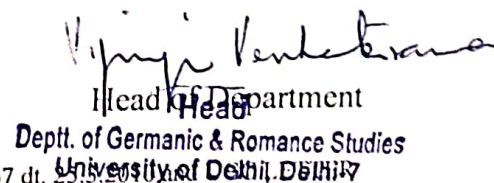 Vijaya Venkataraman
Head of Department
Head
Deptt. of Germanic & Romance Studies
University of Delhi, Delhi-7
7 dt.